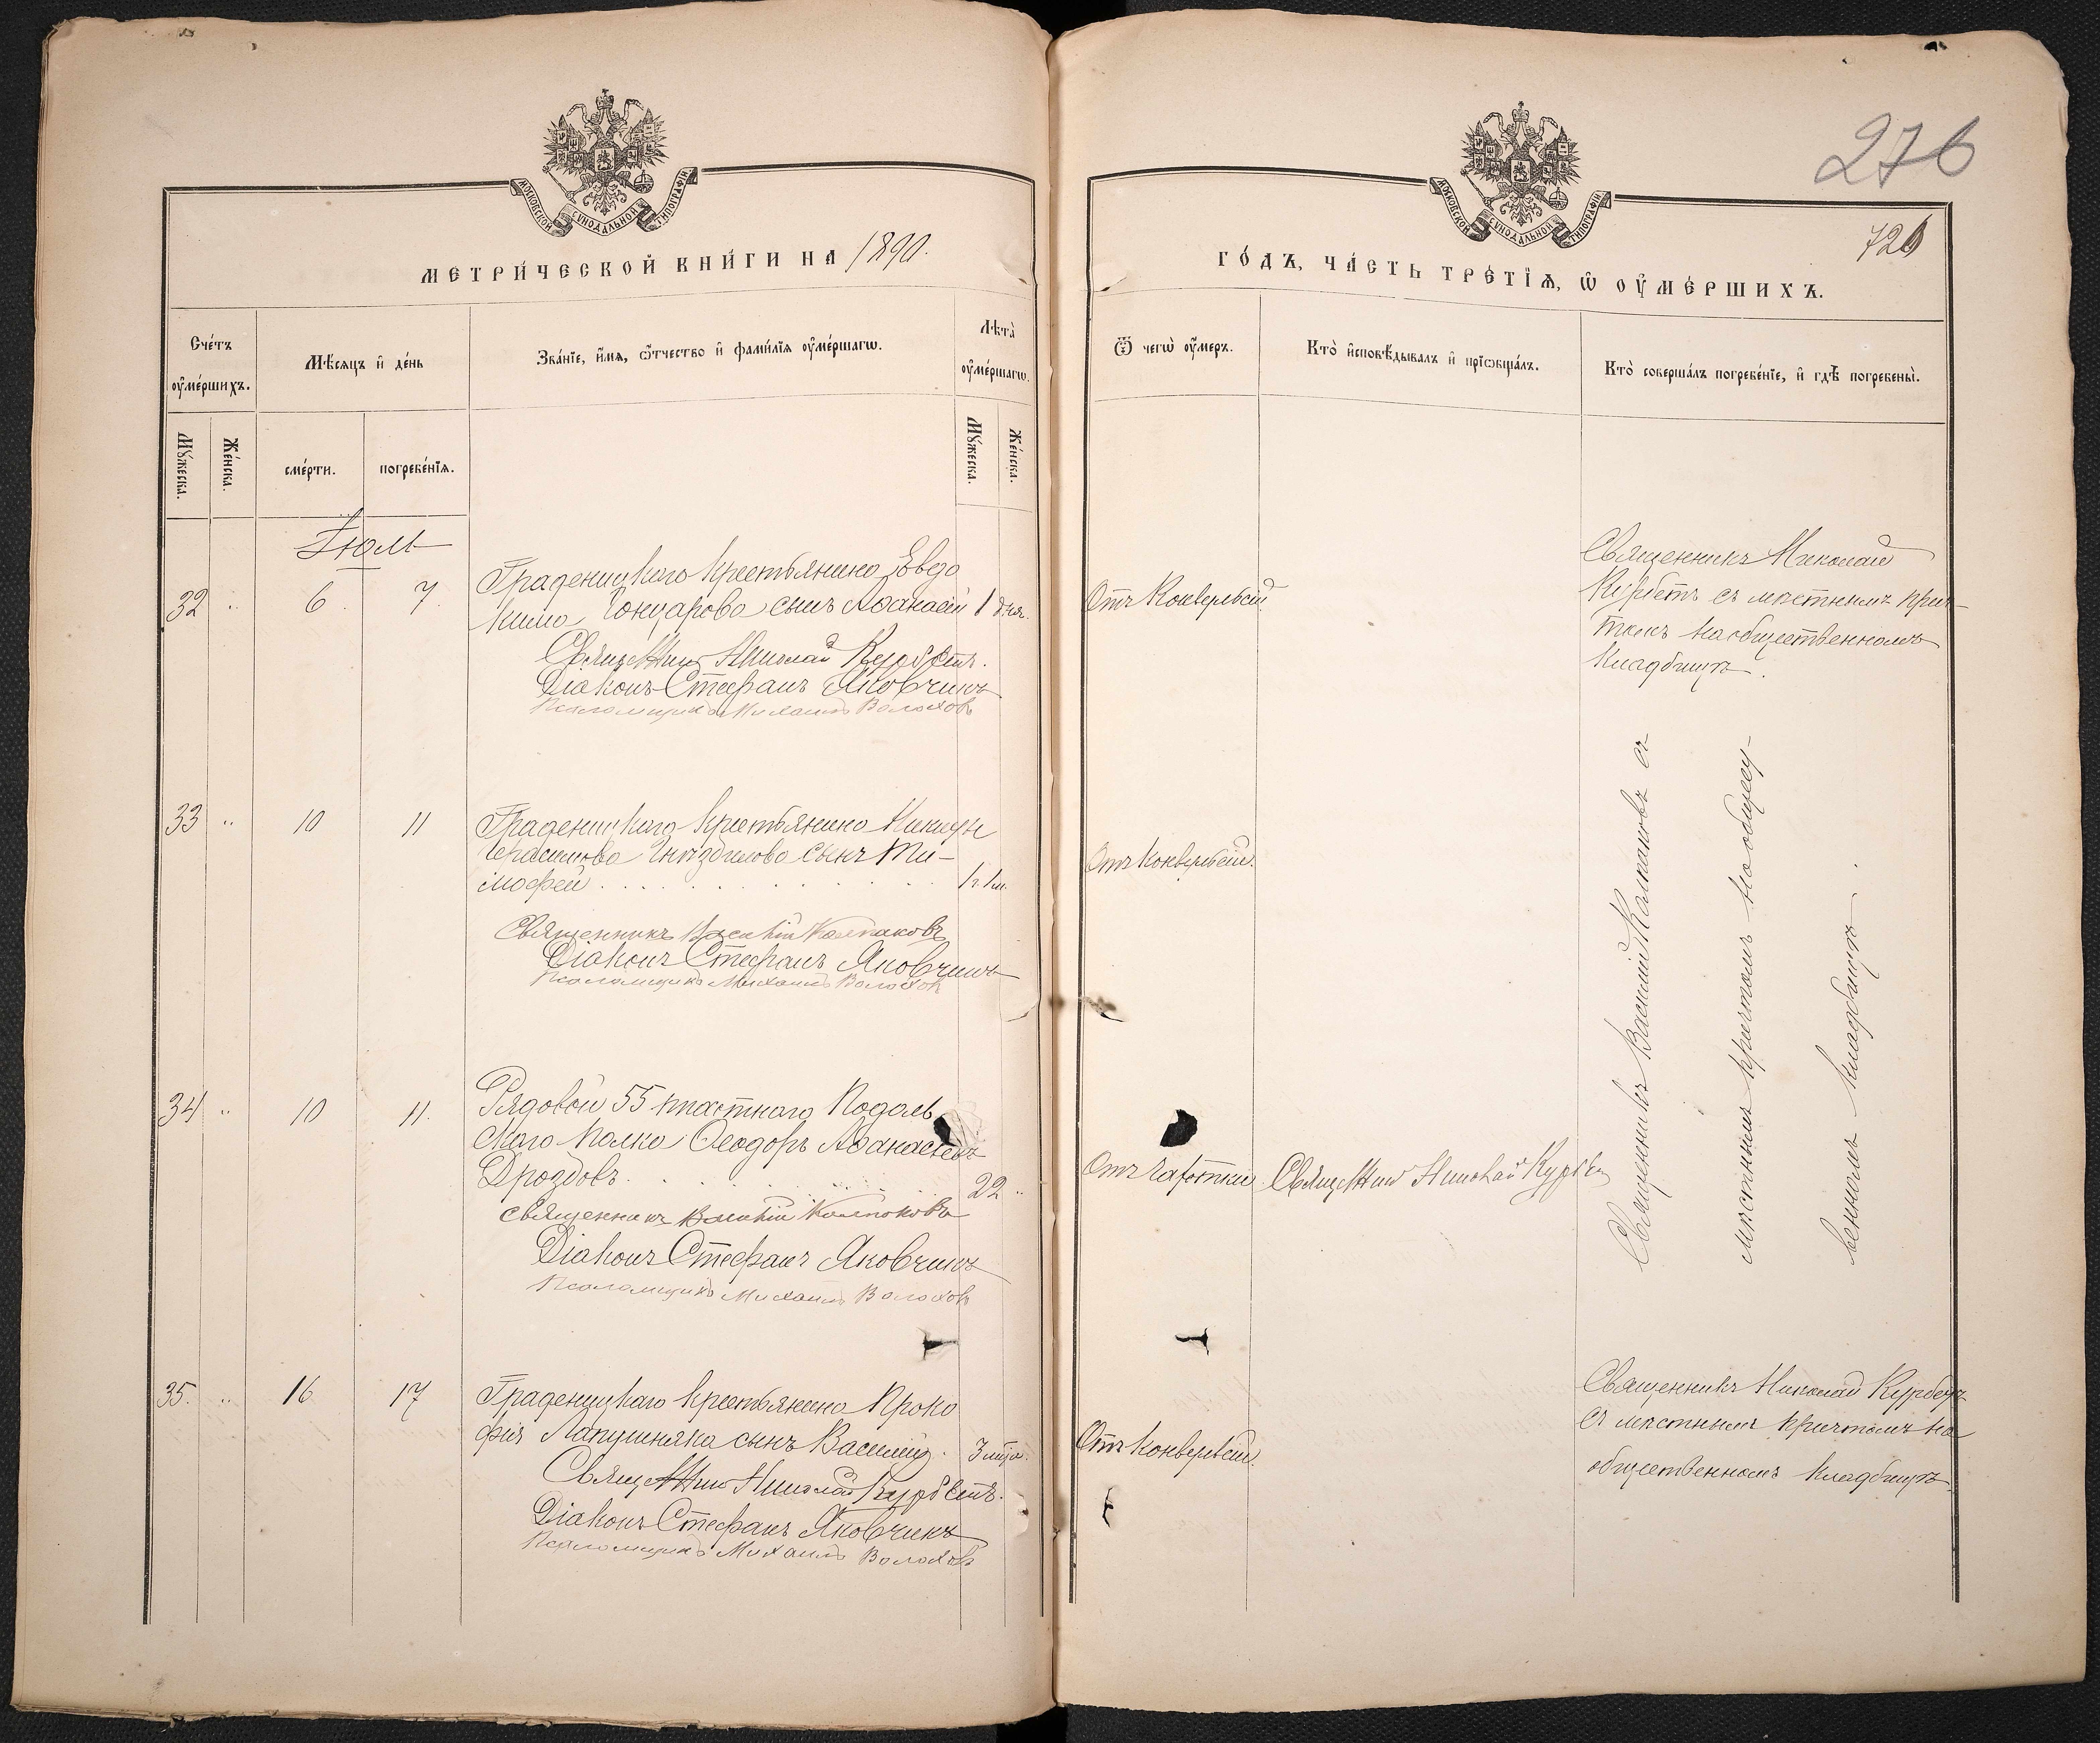 МОСКОВСКОЙ СѴНОДАЛЬНОЙ ТИПОГРАФІИ
МЕТРИ́ЧЕСКОЙ КНИ́ГИ НА 1890.
Сче́тъ оу҆ме́ршихъ.
Мѣ́сяцъ и҆ де́нь
Зва́нїе, и҆́мя, ѻ҆́тчество и҆ фами́лїя оу҆ме́ршагѡ.
Лѣта̀ оу҆ме́ршагѡ.
Мꙋ́жеска.
Же́нска.
сме́рти.
погребе́нїѧ.
Мꙋ́жеска.
Же́нска.
Іюль
32 " 6 7 Граденицкаго крестьянина Евдо
кима Гончарова сынъ Аѳанасій 1 дня.
Священникъ Николай Курбетъ.
Діаконъ Стефанъ Яковчикъ
Псаломщикъ Михаилъ Волоховъ
33 " 10 11 Граденицкаго крестьянина Никиты
Герасимова Гнѣздилова сынъ Ти-
мофей 1 г. 1 м.
Священникъ Василій Колпаковъ
Діаконъ Стефанъ Яковчикъ
Псаломщикъ Михаилъ Волоховъ
34 " 10 11. Рядовой 55 пѣхотнаго Подоль
скаго полка Ѳеодоръ Аѳанасіевъ
Дроздовъ 22 "
Священникъ Василій Колпаковъ
Діаконъ Стефанъ Яковчикъ
Псаломщикъ Михаилъ Волоховъ
35. " 16 17 Граденицкаго крестьянина Проко
фія Лапушняка сынъ Василій.
Священникъ Николай Курбетъ.
Діаконъ Стефанъ Яковчикъ
Псаломщикъ Михаилъ Волоховъ
276
726
МОСКОВСКОЙ СѴНОДАЛЬНОЙ ТИПОГРАФІИ
ГО́ДЪ, ЧА́СТЬ ТРЕ́ТЇѦ, Ѡ҆ ОУ҆МЕ́РШИХЪ.
Ѿ чегѡ̀ оу҆́меръ.
Кто̀ и҆сповѣ́дывалъ и҆ прїѡбща́лъ.
Кто̀ соверша́лъ погребе́нїе, и҆ гдѣ̀ погребены̀.
Отъ конвульсій.
Священникъ Николай
Курбетъ съ мѣстнымъ прич-
томъ на общественномъ
кладбищѣ.
Отъ конвульсій.
Отъ чахотки Священникъ Николай Курбетъ
Священникъ Василій Колпаковъ съ
мѣстнымъ причтомъ на общест-
венномъ кладбищѣ.
Отъ конвульсій.
Священникъ Николай Курбетъ
съ мѣстнымъ причтомъ на
общественномъ кладбищѣ.